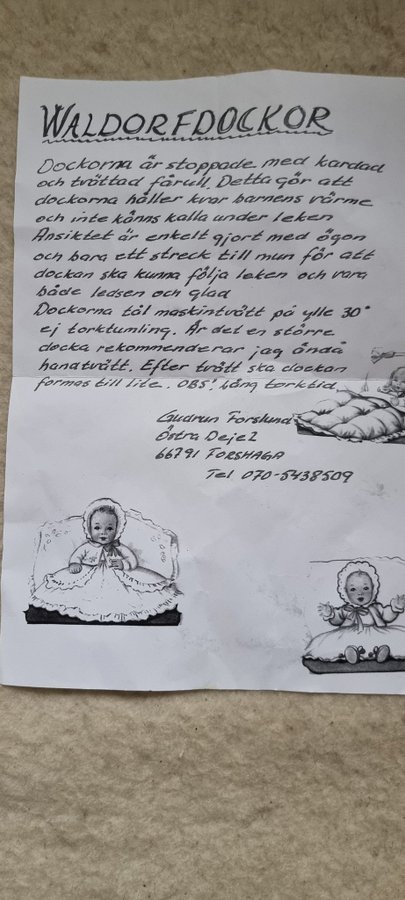 WALDORFDOCKOR
Dockorna är stoppade med kardad
och tvättad fårull. Detta gör att
dockorna håller kvar barnens värme
och inte känns kalla under leken
Ansiktet är enkelt gjort med ögon
och bara ett streck till mun för att
dockan ska kunna följa leken och vara
både ledsen och glad
Dockorna tål maskintvätt på ylle 30°
ej torktumling. Är det en större
docka rekommenderar jag ändå
handtvätt. Efter tvätt ska dockan
formas till lite. OBS! Lång torktid.
Gudrun Forslund
Östra Deje 2
66791 FORSHAGA
Tel 070-5438509